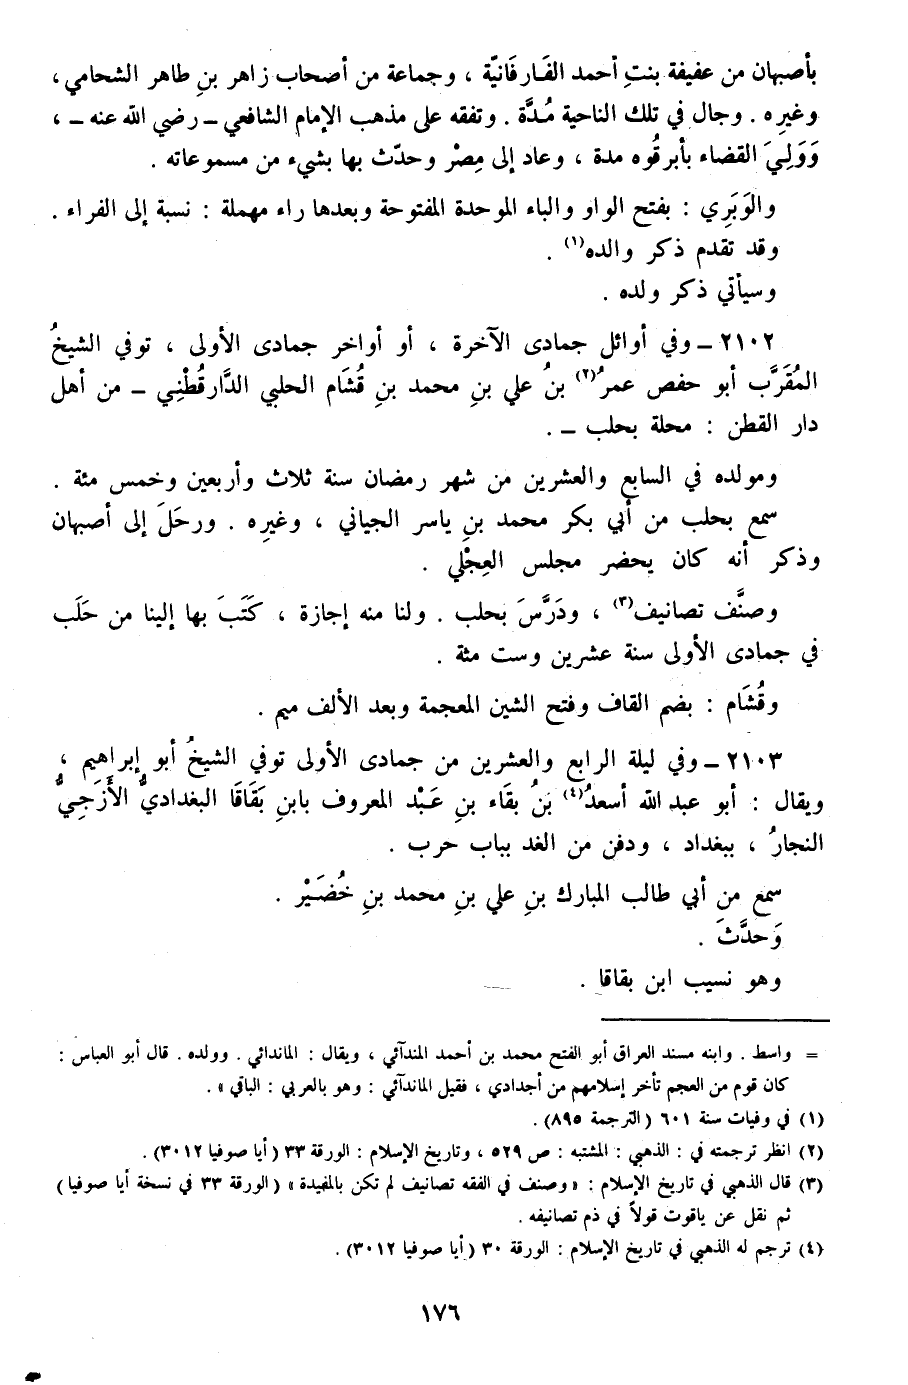 بأصبهان من عفيفة بنتِ أحمد الفَارفَانيّة ، وجماعة من أصحاب زاهر بنِ طاهر الشحامي ،
وغيرِه . وجال في تلك الناحية مُدَّة . وتفقه على مذهب الإمام الشافعي ـ رضي الله عنه ـ ،
وَوَلِيَ القضاء بأبرقُوه مدة ، وعاد إلى مِصْر وحدّث بها بشيء من مسموعاته .
والوَبَرِي : بفتح الواو والباء الموحدة المفتوحة وبعدها راء مهملة : نسبة إلى الفراء .
وقد تقدم ذكر والده(١) .
وسيأتي ذكر ولده .
٢١٠٢ ـ وفي أوائل جمادى الآخرة ، أو أواخر جمادى الأولى ، توفي الشيخُ
المُقَرَّب أبو حفص عمرُ(٢) بنُ علي بنِ محمد بنِ قُشَام الحلبي الدَّارقُطْنِي ـ من أهل
دار القطن : محلة بحلب ـ .
ومولده في السابع والعشرين من شهر رمضان سنة ثلاث وأربعين وخمس مئة .
سمع بحلب من أبي بكر محمد بنِ ياسر الجياني ، وغيرِه . ورحَلَ إلى أصبهان
وذكر أنه كان يحضر مجلس العِجْلي .
وصنَّف تصانيف(٣) ، ودَرَّسَ بحلب . ولنا منه إجازة ، كَتَبَ بها إلينا من حَلَب
في جمادى الأولى سنة عشرين وست مئة .
وقُشَام : بضم القاف وفتح الشين المعجمة وبعد الألف ميم .
٢١٠٣ ـ وفي ليلة الرابع والعشرين من جمادى الأولى توفي الشيخُ أبو إبراهيم ،
ويقال : أبو عبد الله أسعدُ(٤) بنُ بقَاء بنِ عَبْد المعروف بابنِ بَقَاقَا البغداديُّ الأَزَجِيُّ
النجارُ ، ببغداد ، ودفن من الغد بباب حرب .
سمع من أبي طالب المبارك بنِ علي بنِ محمد بنِ خُضَيْر .
وَحدَّثَ .
وهو نسيب ابن بقاقا .
= واسط . وابنه مسند العراق أبو الفتح محمد بن أحمد المندآئي ، ويقال : الماندائي . وولده . قال أبو العباس :
كان قوم من العجم تأخر إسلامهم من أجدادي ، فقيل الماندآئي : وهو بالعربي : الباقي » .
(١) في وفيات سنة ٦٠١ (الترجمة ٨٩٥) .
(٢) انظر ترجمته في : الذهبي : المشتبه : ص ٥٢٩ ، وتاريخ الإسلام : الورقة ٣٣ (أيا صوفيا ٣٠١٢) .
(٣) قال الذهبي في تاريخ الإسلام : « وصنف في الفقه تصانيف لم تكن بالمفيدة » (الورقة ٣٣ في نسخة أيا صوفيا)
ثم نقل عن ياقوت قولاً في ذم تصانيفه .
(٤) ترجم له الذهبي في تاريخ الإسلام : الورقة ٣٠ (أيا صوفيا ٣٠١٢) .
١٧٦